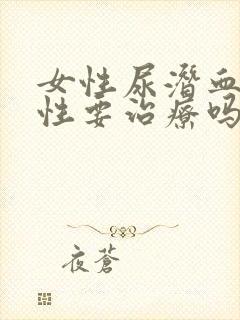 女性尿潜血
性要治疗吗
夜苍